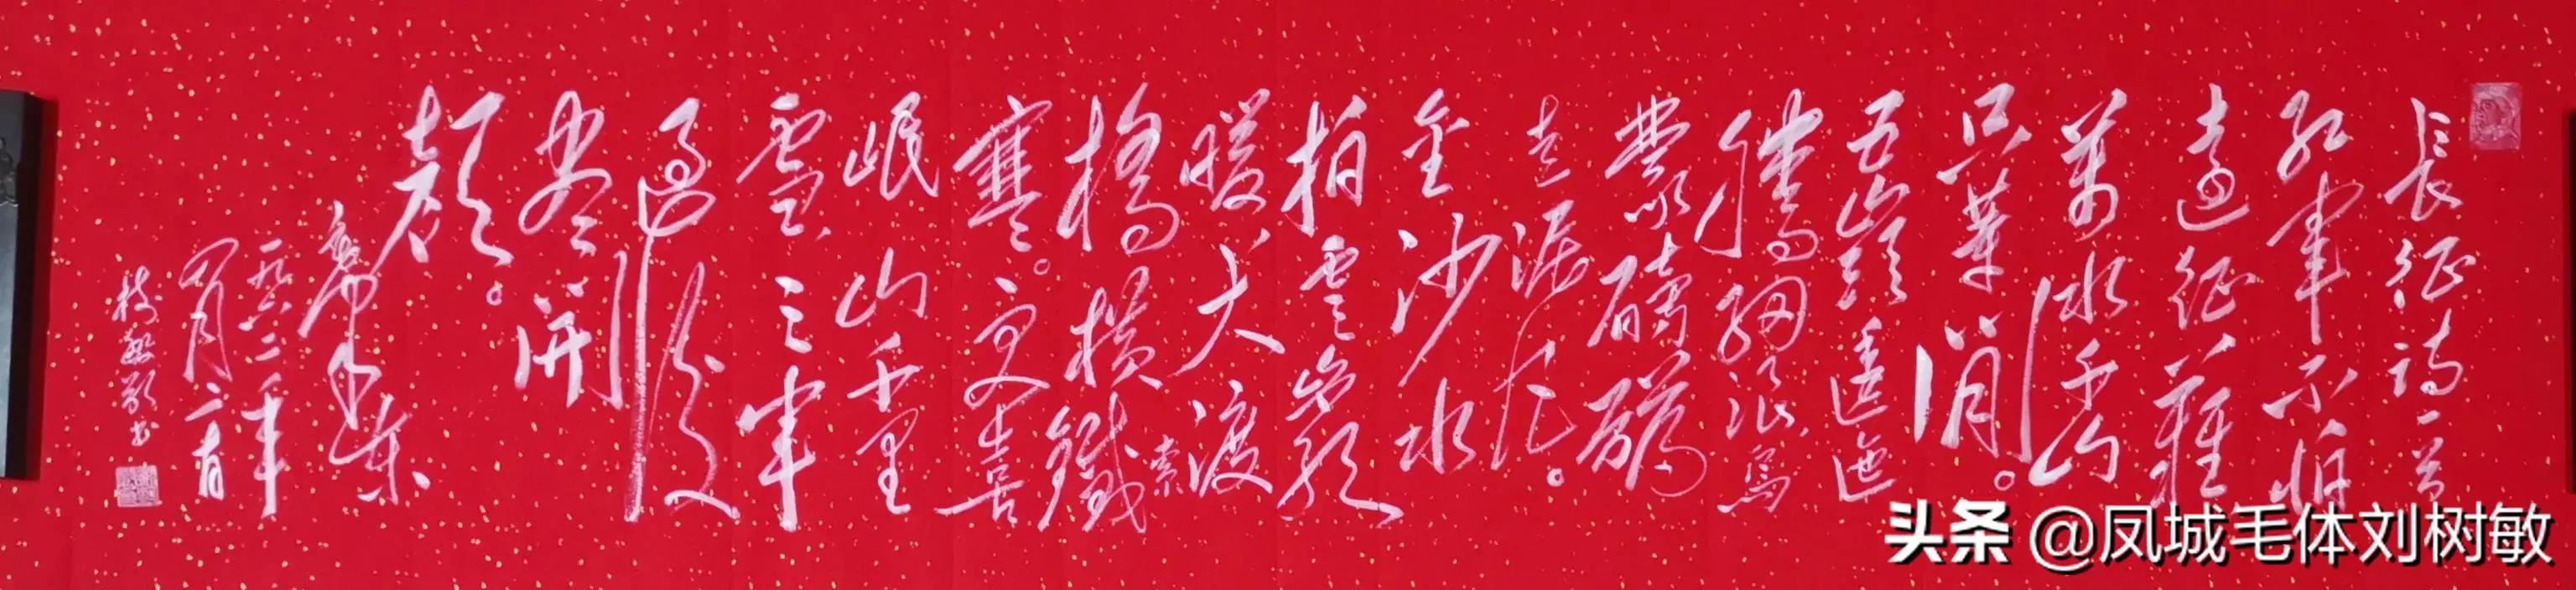 長征詩一首
紅軍不怕
遠征難
萬水千山
只等閒。
五嶺逶迤
騰細浪烏
蒙磅礴
走泥丸。
金沙水
拍雲崖
暖大渡
橋橫鐵索
寒。更喜
岷山千里
雪三軍
過後
盡開
顏。
毛澤東
一九六二年
四月二十日
樹敏敬書
头条 @凤城毛体刘树敏